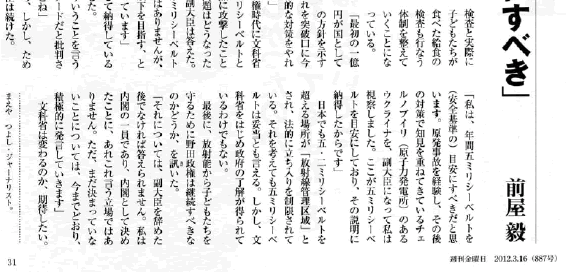 すべき」
前屋 毅
検査と実際に
子どもたちが
食べた給食の
検査も行なう
体制を整えて
いくことにな
っている。
「最初の一億
円が国として
の方針を示す
れを突破口に今
的な対策をやれ
権時代に文科省
ミリシーベルトと
に攻撃したこと
題はどうなった
副大臣は答えた。
はありませんが、
ミリシーベルト
下を目指す、と
ています」
て納得している
いうことを言う
ードだと批判さ
ね」
、しかし、ため
は続けた。
「私は、年間五ミリシーベルトを
(安全基準の)目安にすべきだと思
います。原発事故を経験し、その後
の対策で知見を重ねてきているチェ
ルノブイリ(原子力発電所)のある
ウクライナを、副大臣になって私は
視察しました。ここが五ミリシーベ
ルトを目安にしており、その説明に
納得したからです」
日本でも五・二ミリシーベルトを
超える場所が「放射線管理区域」と
され、法的に立ち入りを制限されて
いる。それを考えても五ミリシーベ
ルトは妥当とも言える。しかし、文
科省をはじめ政府の了解が得られて
いるわけでもない。
最後に、放射能から子どもたちを
守るために野田政権は継続すべきな
のかどうか、を訊いた。
「それについては、副大臣を辞めた
後でなければ答えられません。私は
内閣の一員であり、内閣として決め
たことに、あれこれ言う立場ではあ
りません。ただ、まだ決まっていな
いことについては、今までどおり、
積極的に発言していきます」
文科省は変わるのか、期待したい。
まえや つよし・ジャーナリスト。
31
週刊金曜日 2012.3.16 (887号)